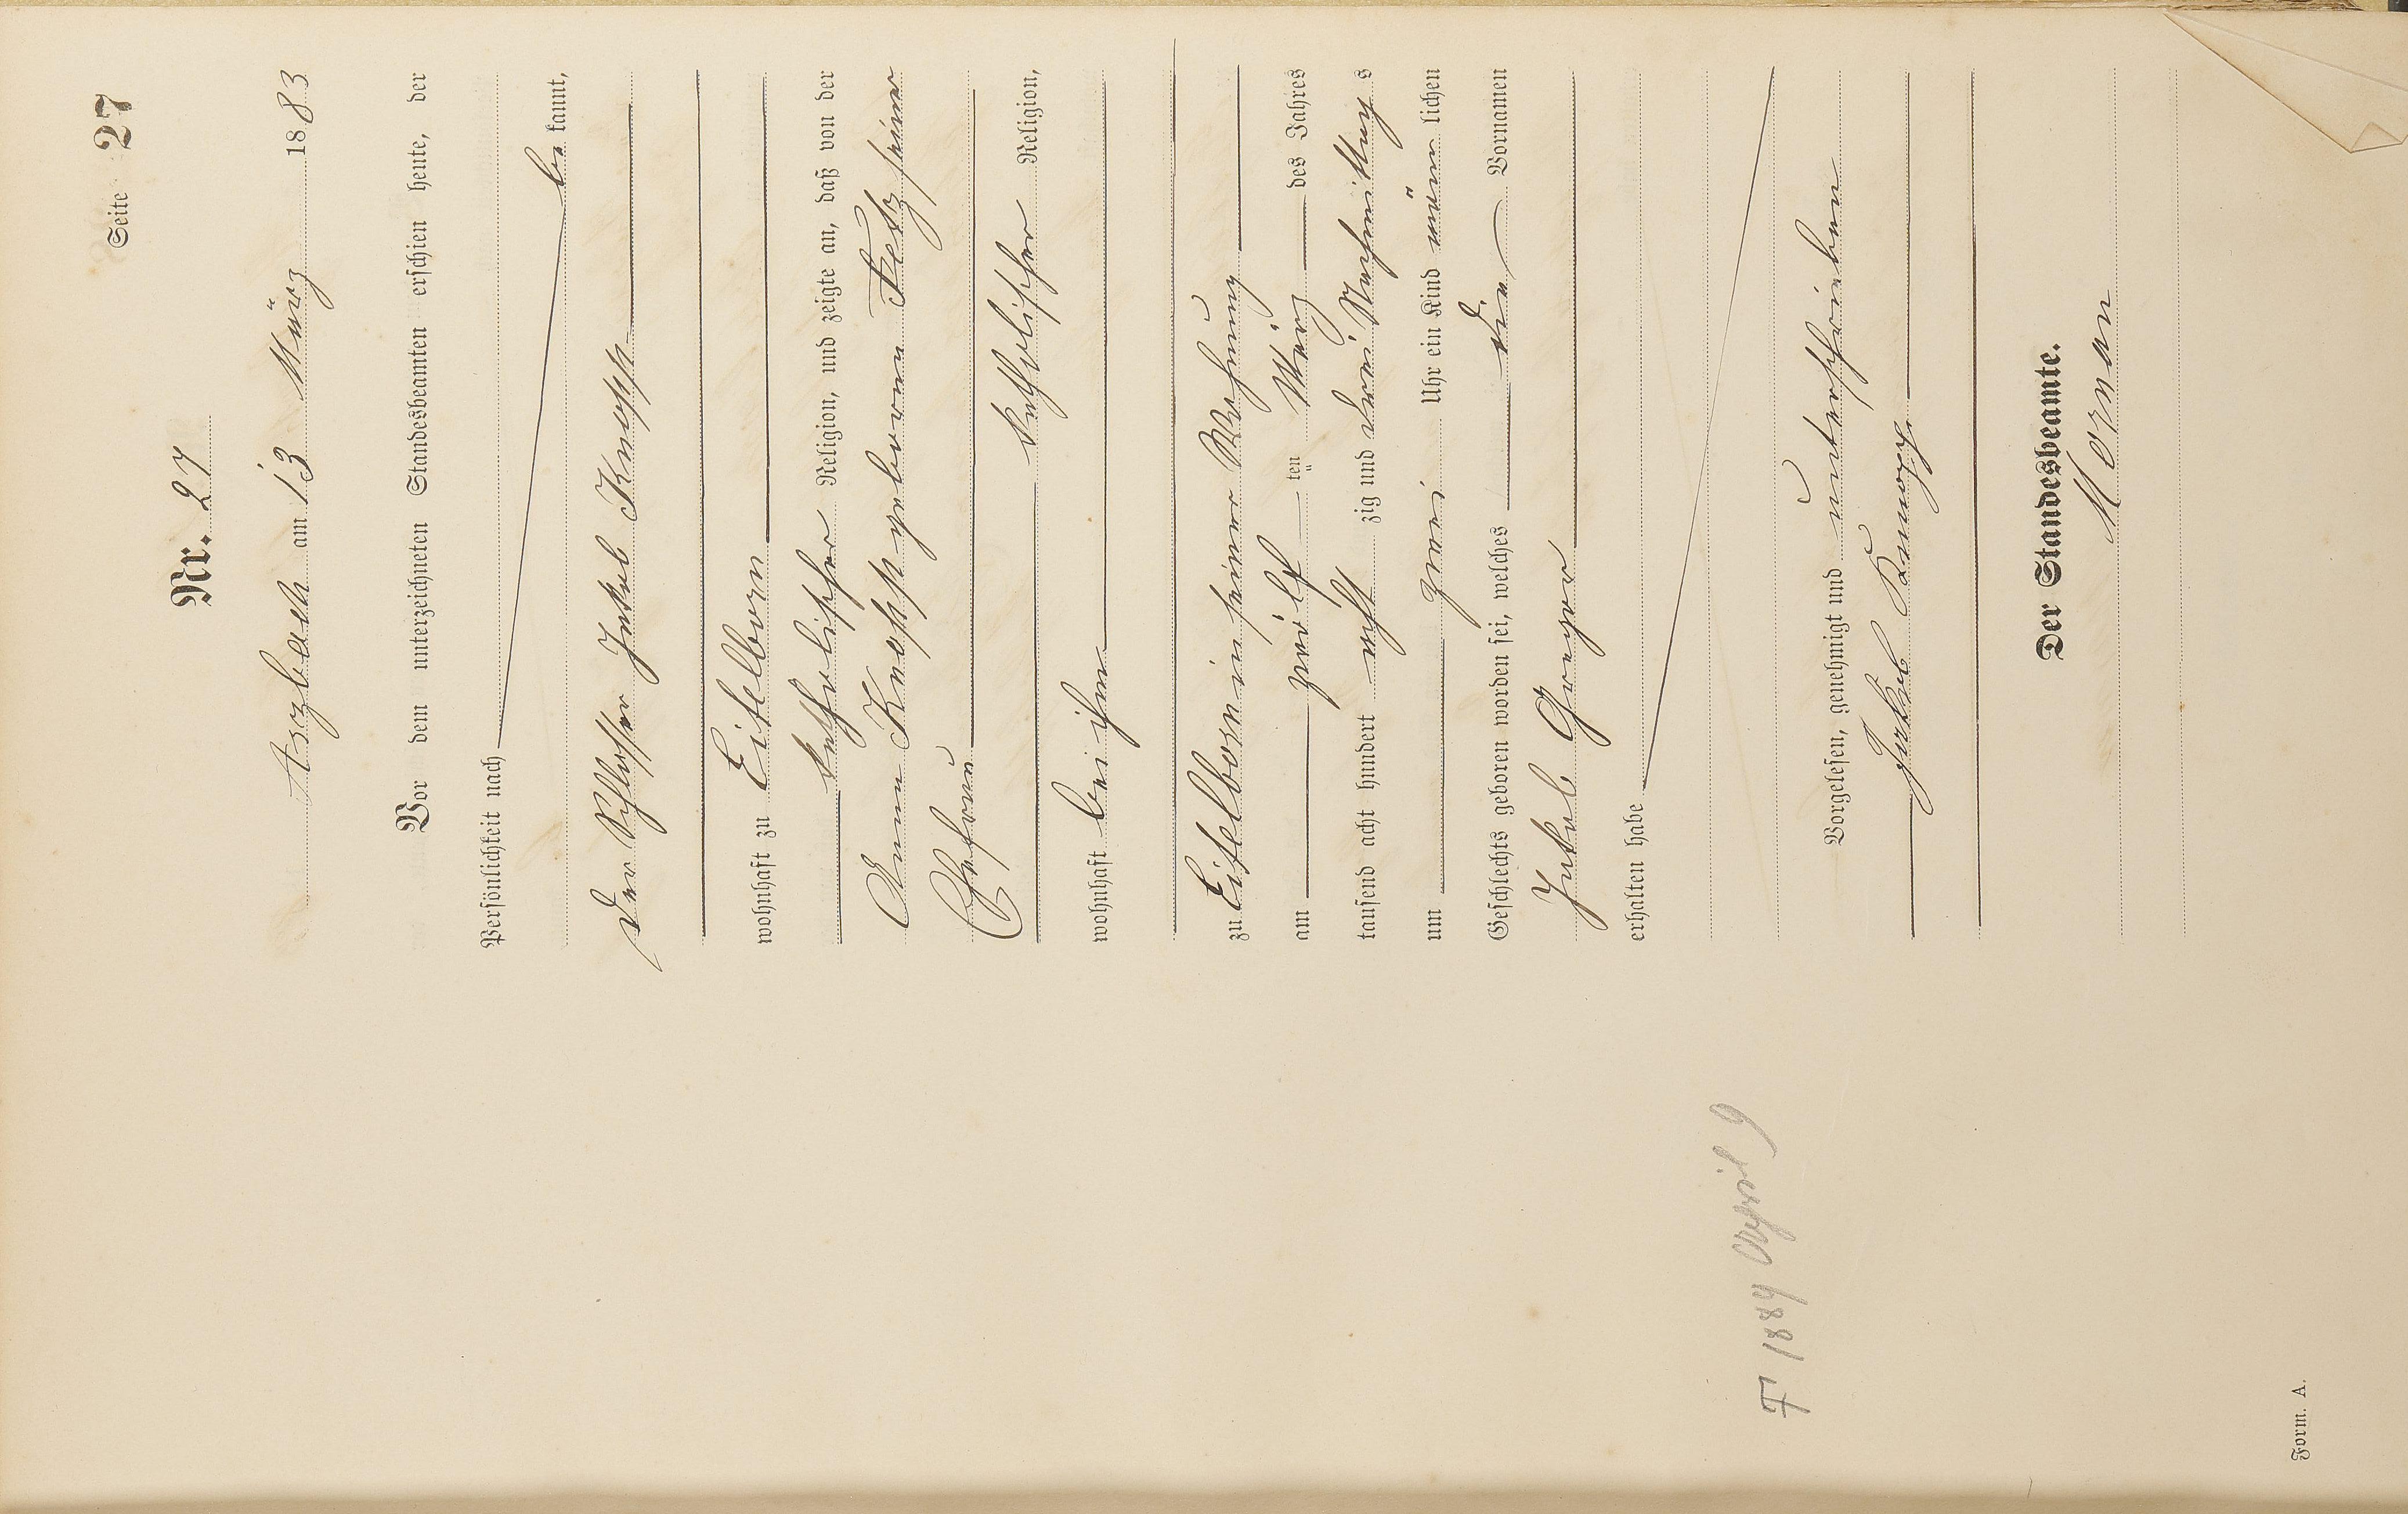 Seite 27
Nr. 27
Arzbach am 13 März 1883
Vor dem unterzeichneten Standesbeamten erschien heute, der
Persönlichkeit nach
be kannt,
der Schlosser Jakob Knopp
wohnhaft zu Eitelborn
katholischer Religion, und zeigte an, daß von der
Anna Knopp geborenen Fetz seiner
Ehefrau
katholischer Religion,
wohnhaft bei ihm
zu Eitelborn in seiner Wohnung
am zwölf ten März des Jahres
tausend acht hundert acht zig und drei Nachmittag s
um zwei Uhr ein Kind männ lichen
Geschlechts geboren worden sei, welches die Vornamen
Jakob Gregor
erhalten habe
Vorgelesen, genehmigt und unterschrieben
Jakob Knopp
Der Standesbeamte.
1884 April 9
Form. A.